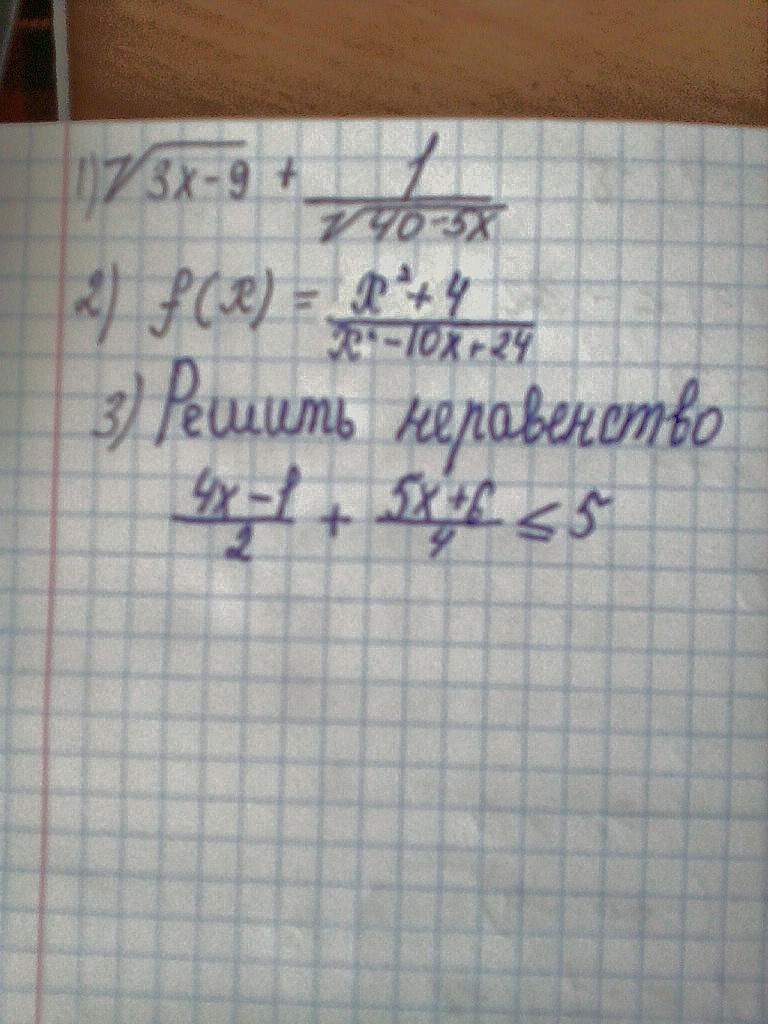 1) √3x-9 + 1/√40-5x
2) f(x) = x²+4/x²-10x+24
3) Решить неравенство
4x-1/2 + 5x+6/4 ≤ 5